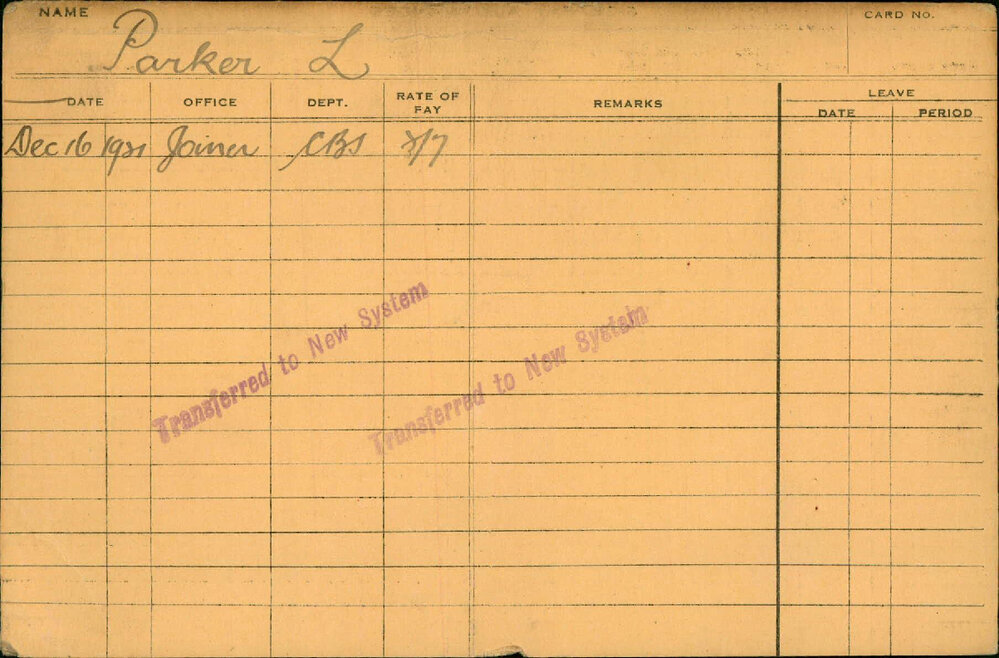 NAME
CARD NO.
Parker L
DATE OFFICE DEPT. RATE OF PAY REMARKS LEAVE
DATE PERIOD
Dec 16 1921 Joiner CBS 2/7
Transferred to New System
Transferred to New System